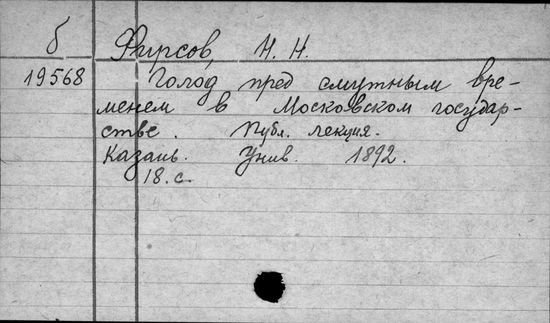 б Фирсов, Н. Н.
19568 Голод пред смутным вре-
менем в Московском государ-
стве. Публ. лекция.
Казань. Унив. 1892.
18. с.